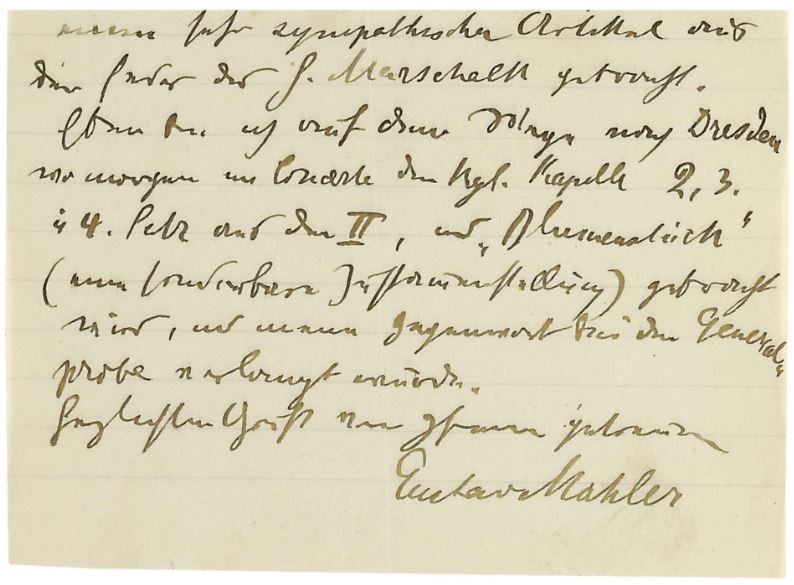 einen sehr sympathischen Artikel aus
der Feder des H. Marschalk gebracht.
Eben bin ich auf dem Wege nach Dresden
wo morgen im Concerte der Kgl. Kapelle 2, 3.
u 4. Satz aus der II, und „Blumenstück"
(eine sonderbare Zusammenstellung) gebracht
wird, und meine Gegenwart bei der General„
probe verlangt wurde.
Herzlichsten Gruß von Ihrem
Gustav Mahler